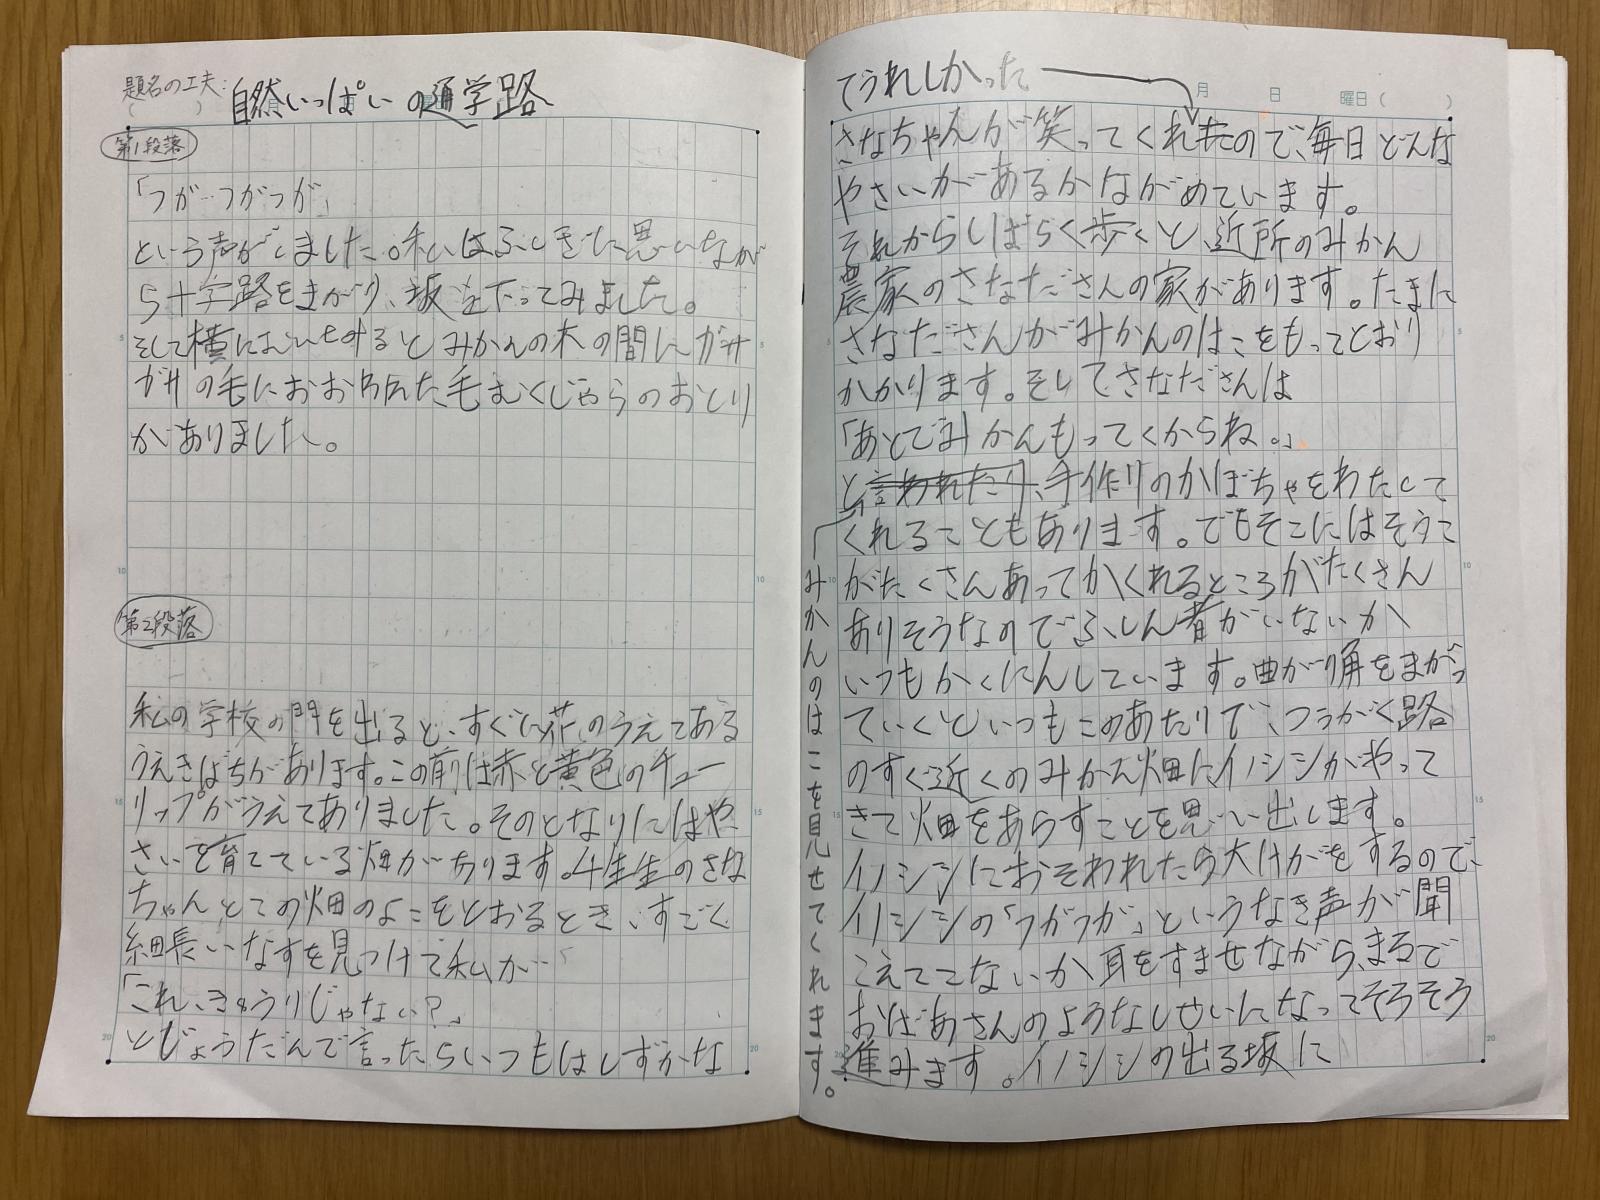 題名の工夫:
自然いっぱいの通学路
第1段落
「つが…つがつが」
という声がしました。私はふしぎに思いなが
ら十字路をまがり、坂を下ってみました。
そして横に
するとみかんの木の間にガサ
ガサの毛におお
た、毛むくじゃらのおとり
がありました。
第2段落
私の学校の門を出ると、すぐに花のうえてある
うえきばちがあります。この前は赤と黄色のチュー
リップがうえてありました。そのとなりにはや
さいを育てている畑があります。4年生のさな
ちゃんとその畑のよこをとおるとき、すごく
細長いなすを見つけて私が…
「これ、きゅうりじゃない?」
とじょうだんで言ったらいつもはしずかな
てうれしかった
さなちゃんが笑ってくれたので、毎日どんな
やさいがあるかながめています。
それからしばらく歩くと、近所のみかん
農家のさなださんの家があります。たまに
さなださんがみかんのはこをもってとおり
かかります。そしてさなださんは
「あとでみかんもってくからね。」
と言われたり、手作りのかぼちゃをわたして
くれることもあります。でもそこにはそうこ
がたくさんあってかくれるところがたくさん
ありそうなのでふしん者がいないか
いつもかくにんしています。曲がり角をまがっ
ていくといつもこのあたりで、つうがく路
のすぐ近くのみかん畑にイノシシがやって
きて畑をあらすことを思い出します。
イノシシにおそわれたら大けがをするので、
イノシシの「つがつが」というなき声が聞
こえてこないか耳をすませながら、まるで
おばあさんのようなしせいになってそろそろ
進みます。イノシシの出る坂に
みかんのはこを見せてくれます。
月 日 曜日( )